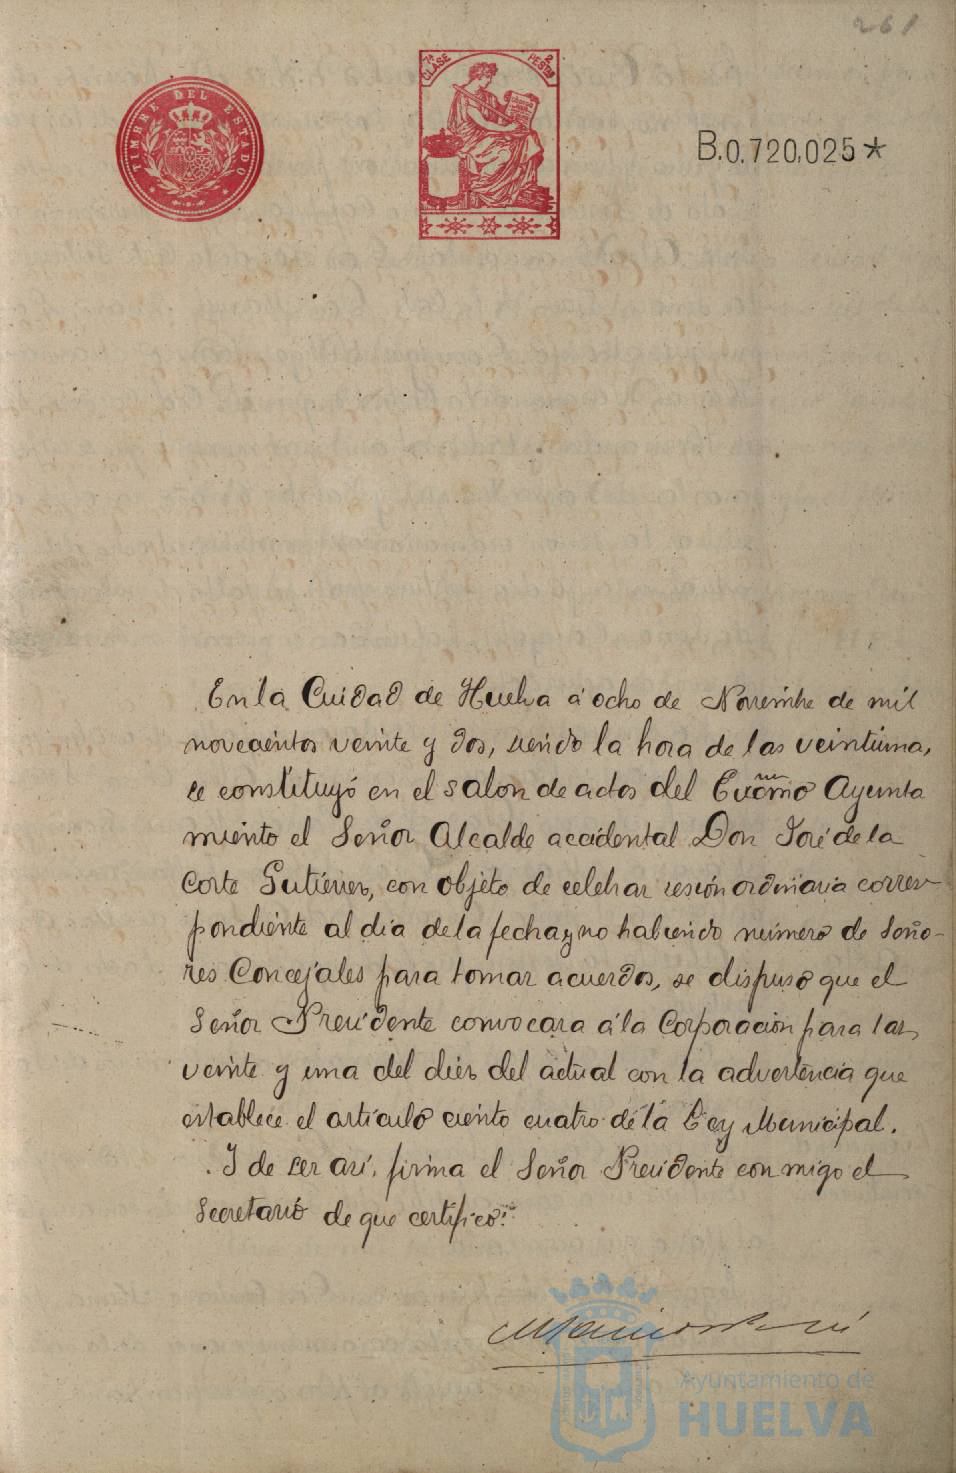 261
TIMBRE DEL ESTADO
7ª CLASE
2 PESTAS
B.0,720,025*
En la Cuidad de Huelva á ocho de Noviembre de mil
novecientos veinte y dos, siendo la hora de las veintiuna,
se constituyó en el salon de actos del Excmo Ayunta
miento el Señor Alcalde accidental Don José de la
Corte Gutiérrez, con objeto de celebrar sesión ordinaria corres-
pondiente al dia de la fecha y no habiendo número de Seño-
res Concejales para tomar acuerdos, se dispuso que el
Señor Presidente convocara á la Corporación para las
veinte y una del diez del actual con la advertencia que
establece el artículo ciento cuatro de la Ley Municipal.
Y de ser así, firma el Señor Presidente conmigo el
Secretario de que certifico.
Ayuntamiento de
HUELVA